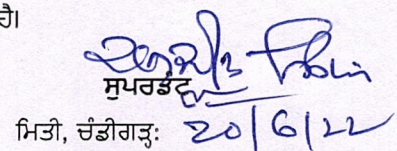 ਹੈ।
ਸੁਪਰਡੰਟ
ਮਿਤੀ, ਚੰਡੀਗੜ੍ਹ: 20/6/22